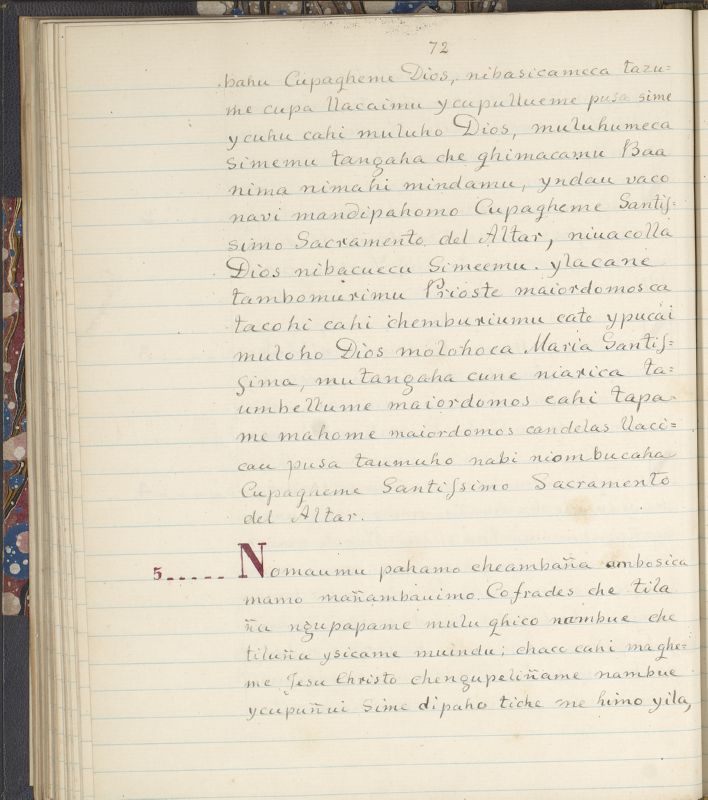 72
bahu Cupagheme Dios, nibasicameca tazu=
me cupa llacaimu ycupullueme pusa sime
ycuhu cahi muluho Dios, muluhumeca
simemu tangaha che ghimacamu Baa
nima nimahi mindamu, yndau vaco
navi mandipahomo Cupagheme Santiſ=
simo Sacramento del Altar, niuacolla
Dios nibacuecu Simeemu. ylacane
tambomurimu Prioste maiordomos ca
tacohi cahi chemburiumu cate ypucái
muloho Dios molohoca Maria Santiſ=
ſima, mutangaha cune niarica ta=
umbellume maiordomos cahi tapa-
me mahome maiordomos candelas llaci=
cau pusa taumuho nabi niombucaha
Cupagheme Santiſsimo Sacramento
del Altar.
5..... Nomaumu pahamo cheambaña ambosica
mamo mañambauimo. Cofrades che tila
ña ngupapame mulu ghico nambue che
tiluña ysicame muindu; chace cahi maghe=
me Jesu Christo chengupeliñame nambue
ycupuñui Sime dipaho tiche =ne himo yila,